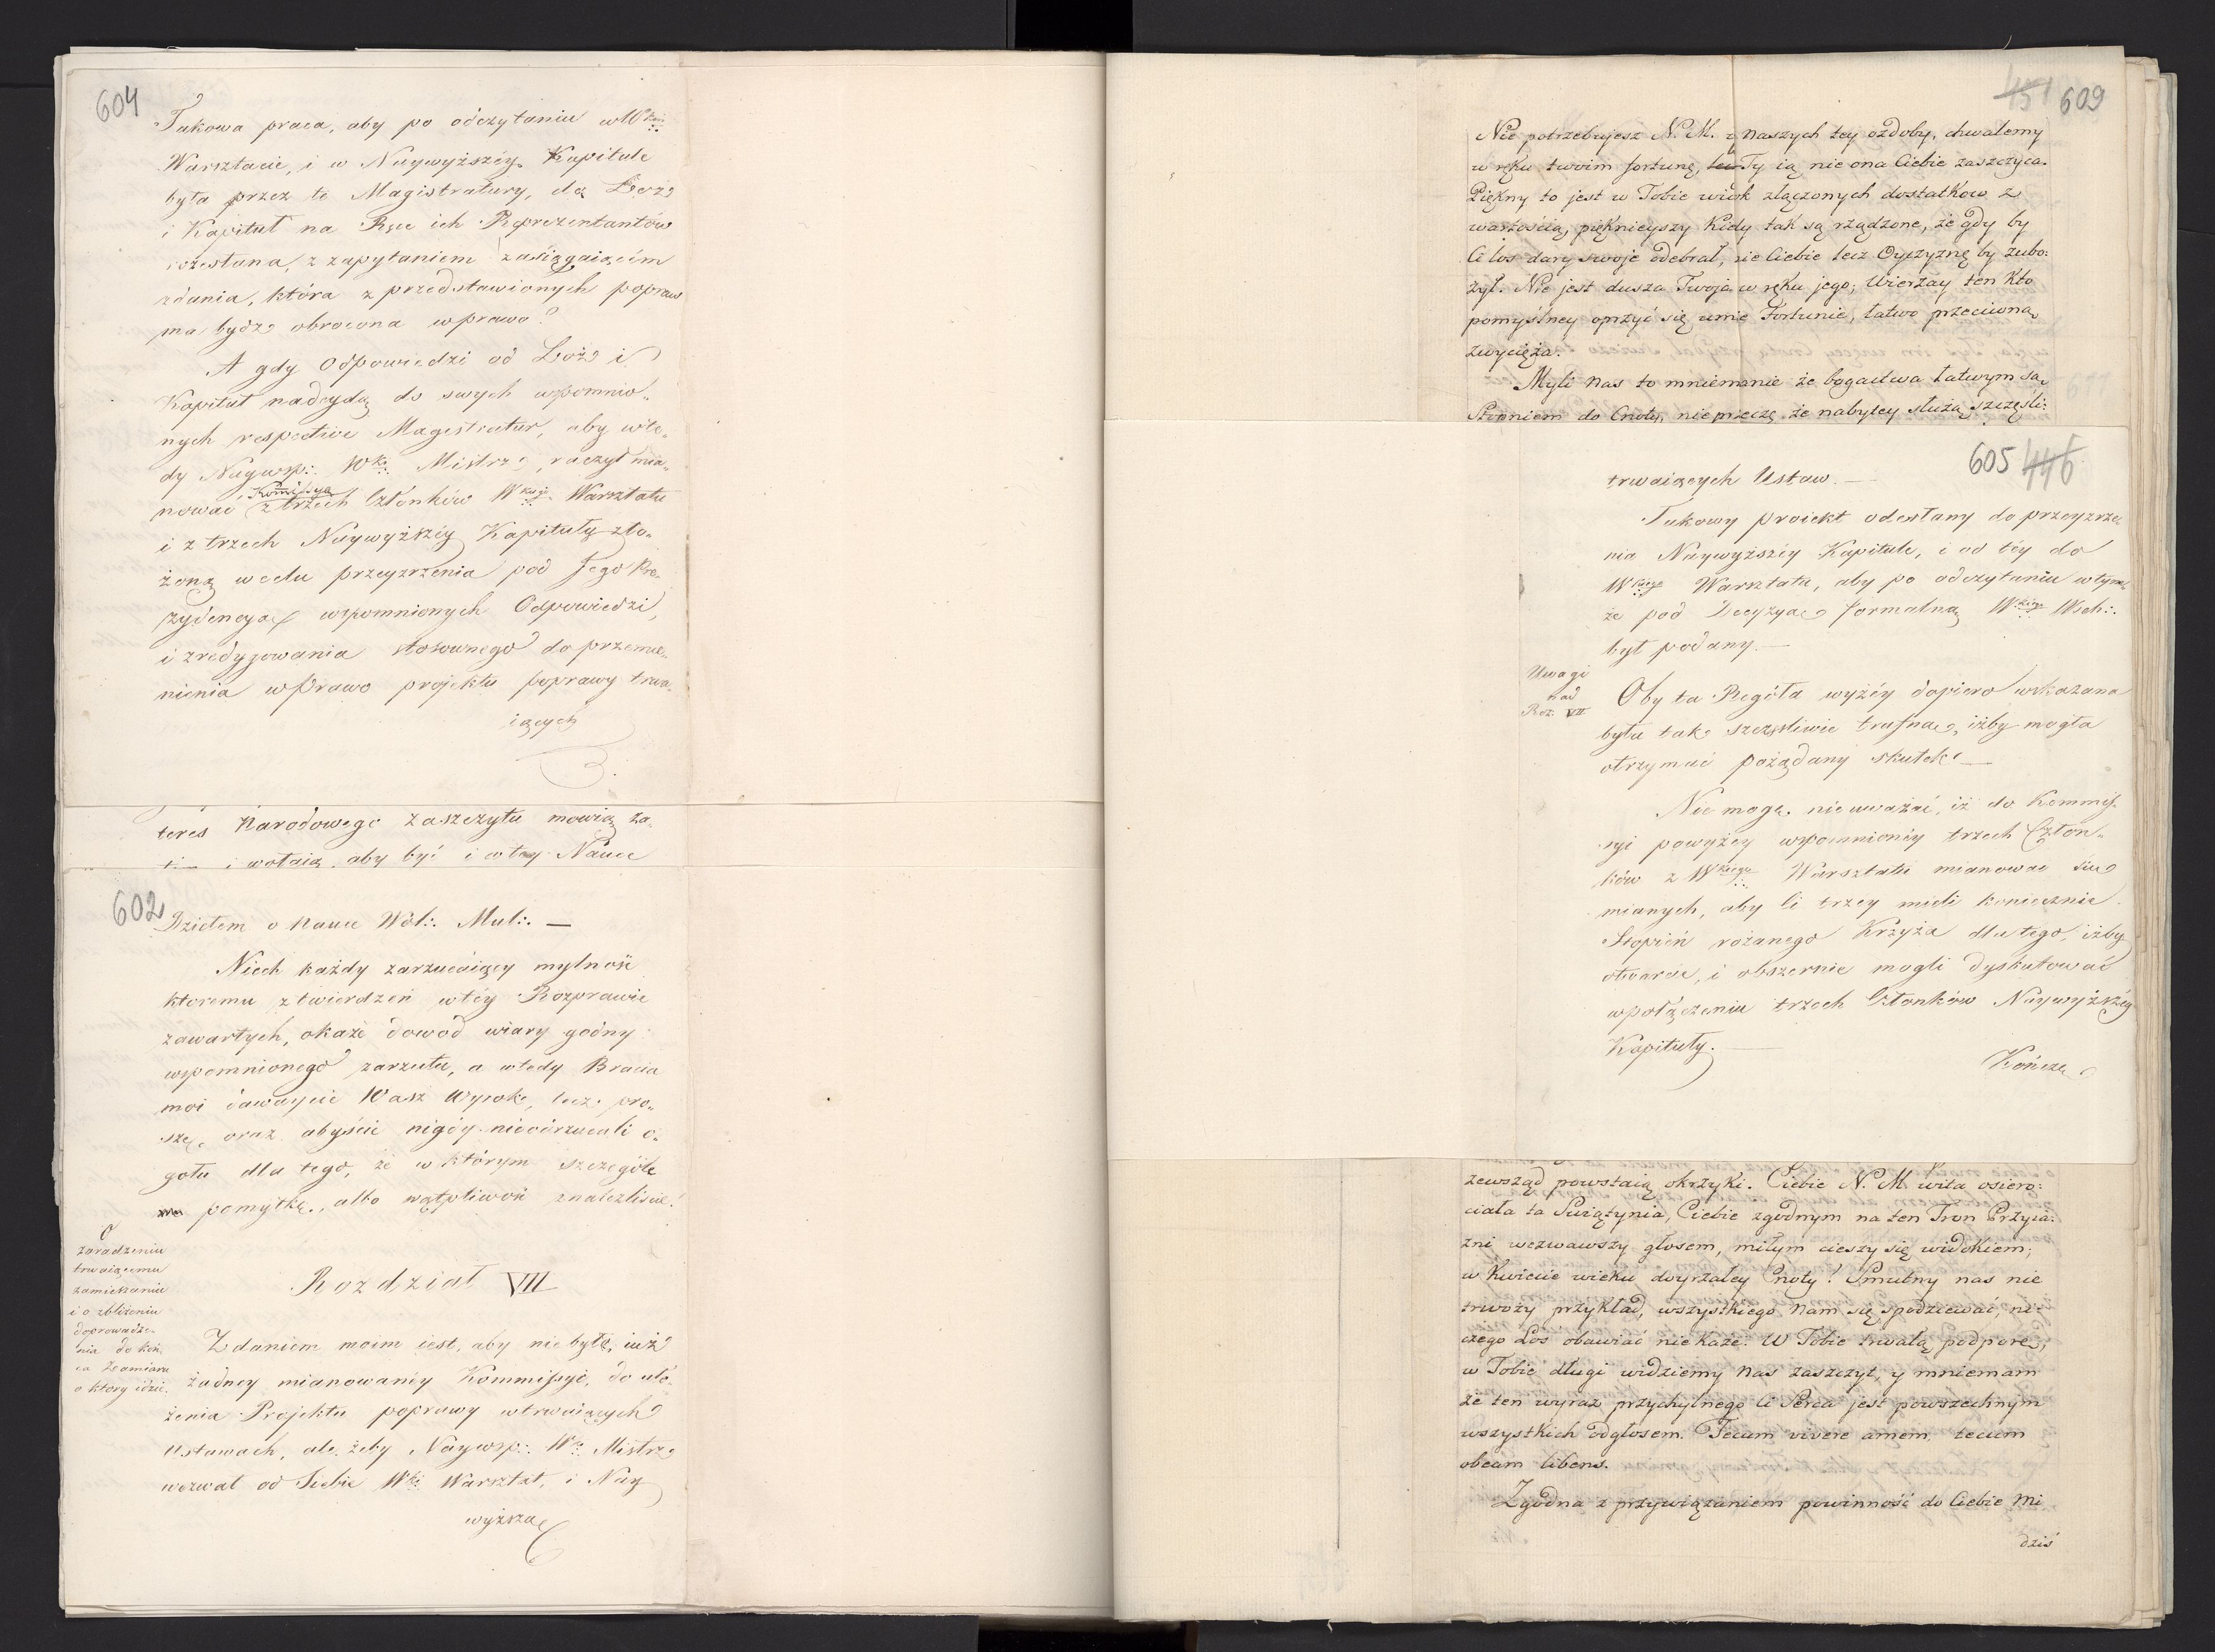 604
Takowa praca, aby po odczytaniu w Wkim
Warsztacie, i w Naywyższéy Kapitule
była przez te Magistratury, do Loż
i Kapituł na Ręce ich Reprezentantów
rozesłana, z zapytaniem zasiągaiącém
zdania, która z przedstawionych popraw
ma bydz obrocona w prawo?
A gdy Odpowiedzi od Loż i
Kapituł nadeydą do swych wpomnio„
nych respective Magistratur, aby wte„
dy Naywsp:. Wki Mistrz, raczył mia„
Kommissyą
nować z trzech Członków Wkiego Warsztatu
i z trzech Naywyższéy Kapituły zło„
żoną w celu przeyrzenia pod Jego Pre„
zydencyą wspomnionych Odpowiedzi,
i zredygowania stosownego do przemie„
nienia w Prawo projektu poprawy trwa„
iących
teres Narodowego zaszczytu mowią za„
i wołaią aby być i w tey Nauce
602
Dziełem o Nauce Wol:. Mul:. —
Niech każdy zarzucaiący mylność
ktoremu z twierdzeń w téy Rozprawie
zawartych, okaże dowod wiary godny
wspomnionego zarzutu, a wtedy Bracia
moi dawaycie Wasz Wyrok, lecz pro„
szę, oraz abyście nigdy nieodrzucali o„
gołu dla tego, że w którym szczególe
pomyłkę, albo wątpliwość znaleźliście!
O
zaradzeniu
trwaiącemu
zamieszaniu
i o zbliżeniu
doprowadze„
nia do koń„
ca Zamiaru
o który idzie.
Rozdział VII
Zdaniem moim iest, aby nie było iuż
żadney mianowanéy Kommissyi, do uło„
żenia Projektu poprawy w trwaiących
Ustawach, ale żeby Naywsp:. Wki Mistrz
wezwał od Siebie Wki Warsztat, i Nay
wyższą
451 609
Nie potrzebujesz N. M. z Naszych tey ozdoby, chwalemy
w ręku twoim fortunę, lecz Ty ią nie ona Ciebie zaszczyca.
Piękny to jest w Tobie widok złączonych dostatkow z
wartością, pięknieyszy kiedy tak są rządzone, że gdy by
Ci los dary swoje odebrał, nie Ciebie lecz Oyczyznę by zubo:
żył. Nie jest dusza Twoja w ręku jego; Wierzay ten kto
pomyślney oprzyć się umie Fortunie, łatwo przeciwną
zwycięża.
Myli Nas to mniemanie że bogactwa łatwym są
Stopniem do Cnoty, nie przeczę że nabytey służą szczęśli:
605 446
trwaiących Ustaw. —
Takowy proiekt odesłany do przeyrze„
nia Naywyższéy Kapitule, i od téy do
Wkiego Warsztatu, aby po odczytaniu w tym„
że pod Decyzyą formalną Wkiego Wsch:.
był podany. —
Uwagi
nad
Roz. VII
Oby ta Reguła wyżéy dopiero wskazana
była tak szczęśliwie trafna, iżby mogła
otrzymać pożądany skutek —
Nie mogę nie uważać, iż do Kommis„
syi powyżey wspomnionéy trzech Człon„
ków z Wkiego Warsztatu mianować się
mianych, aby Ci trzey mieli koniecznie
Stopień różanego Krzyża dla tego, iżby
otwarcie, i obszernie mogli dyskutować
w połączeniu trzech Członków Naywyższéy
Kapituły. —
Kończę
zewsząd powstaią okrzyki. Ciebie N. M. wita osiero:
ciała ta Swiątynia, Ciebie zgodnym na ten Tron Przyia:
zni wezwawszy głosem, miłym cieszy się widokiem,
w Kwiecie wieku doyrzałey Cnoty! Smutny nas nie
trwoży przykład, wszystkiego Nam się spodziewać, ni:
czego Los obawiać nie każe. W Tobie trwałą podporę,
w Tobie długi widziemy Nas zaszczyt, y mniemam
że ten wyraz przychylnego Ci Serca jest powszechnym
wszystkich odgłosem. Tecum vivere amem, tecum
obeam libens.
Zgodna z przywiązaniem powinność do Ciebie mi
dziś